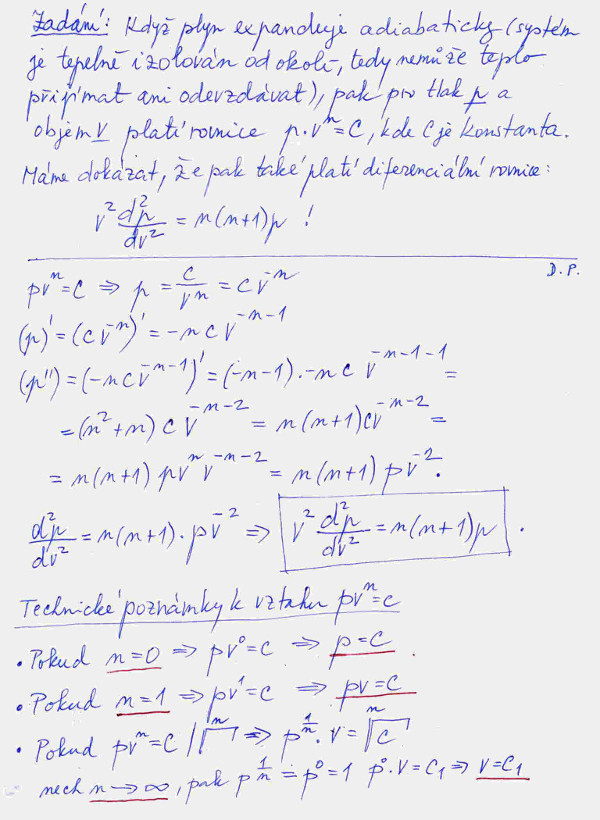 Zadání: Když plyn expanduje adiabaticky (systém
je tepelně izolován od okolí, tedy nemůže teplo
přijímat ani odevzdávat), pak pro tlak p a
objem V platí rovnice p·vⁿ=C, kde C je konstanta.
Máme dokázat, že pak také platí diferenciální rovnice:
v² d²p/dv² = n(n+1)p !
D.P.
pvⁿ=C ⇒ p = c/vⁿ = cv⁻ⁿ
(p)' = (cv⁻ⁿ)' = -ncv⁻ⁿ⁻¹
(p'') = (-ncv⁻ⁿ⁻¹)' = (-n-1).-nc v⁻ⁿ⁻¹⁻¹ =
= (n²+n)cv⁻ⁿ⁻² = n(n+1)cv⁻ⁿ⁻² =
= n(n+1) pvⁿv⁻ⁿ⁻² = n(n+1) pv⁻².
d²p/dv² = n(n+1)·pv⁻² ⇒ v² d²p/dv² = n(n+1)p .
Technické poznámky k vztahu pvⁿ=c
• Pokud n=0 ⇒ pv⁰=c ⇒ p=c.
• Pokud n=1 ⇒ pv¹=c ⇒ pv=c
• Pokud pvⁿ=c /ⁿ√ ⇒ p^(1/n)·v = ⁿ√c
nech n→∞, pak p^(1/n) = p⁰=1 p⁰·v=C₁ ⇒ v=C₁